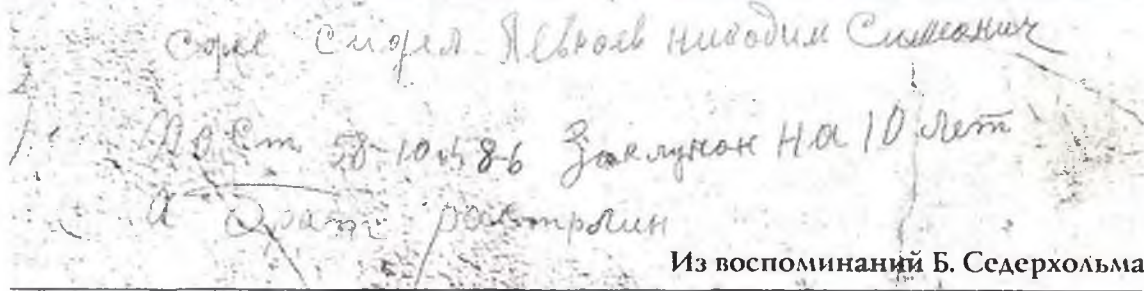 Сидел Никодим Симеонич
По Ст 58-10.58-6 Заклучон На 10 лет
А Брат растрълин
Из воспоминаний Б. Седерхольма